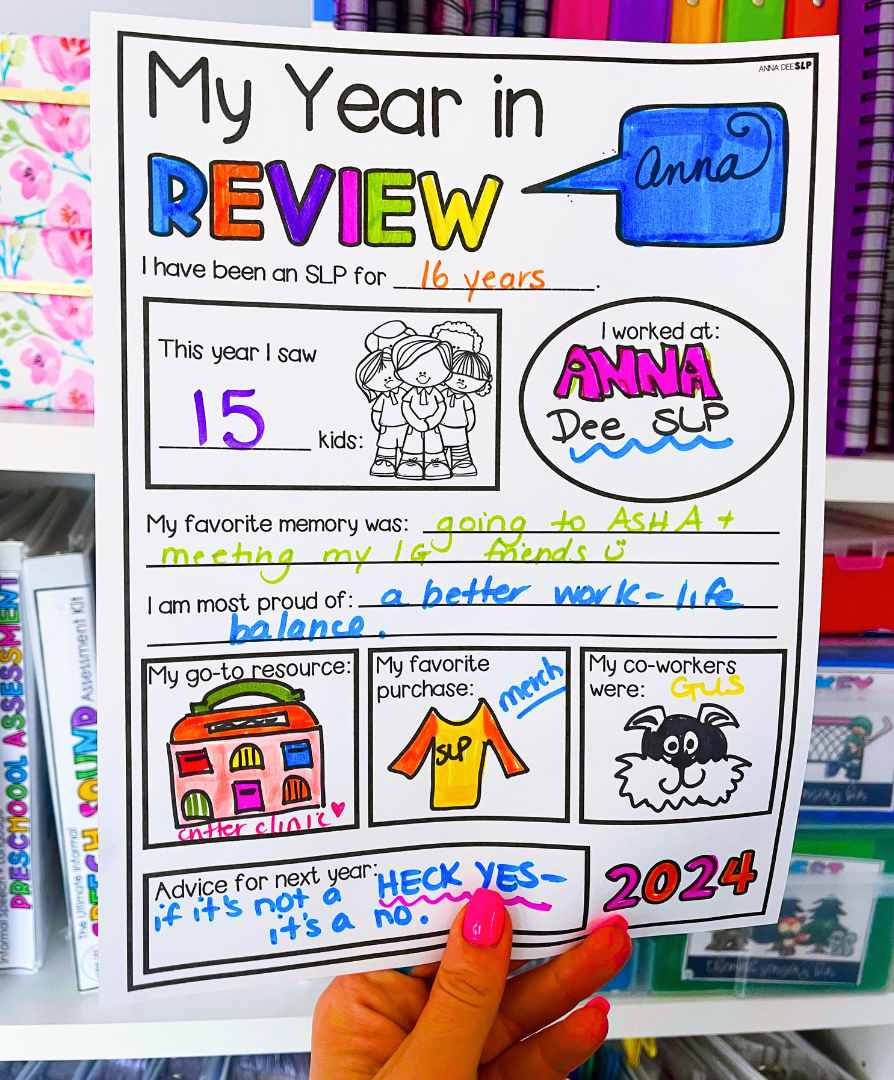 ANNA DEE SLP
My Year in
REVIEW
Anna
I have been an SLP for 16 years.
This year I saw
15 kids:
I worked at:
ANNA
Dee SLP
My favorite memory was: going to ASHA +
meeting my IG friends
I am most proud of: a better work-life
balance.
My go-to resource:
critter clinic
My favorite
purchase:
merch
SLP
My co-workers
were: Gus
Advice for next year: HECK YES-
if it's not a
it's a no.
2024
PRESCHOOL ASSESSMENT
Informal Speech + Language
SPEECH SOUND Assessment Kit
The Ultimate Informal